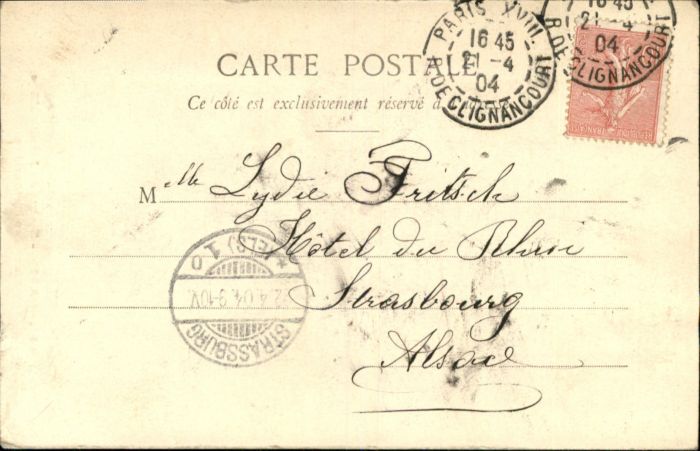 PARIS XVIII.
16 45
21 - 4
04
R. DE CLIGNANCOURT
16 45
21 - 4
04
R. DE CLIGNANCOURT
REPUBLIQUE FRANÇAISE
CARTE POSTALE
Ce côté est exclusivement réservé à
Melle Lydie Fritsch
Hôtel du Rhin
Strasbourg
Alsace
STRASSBURG
22.4.04. 9-10V.
* (ELS) 1 o